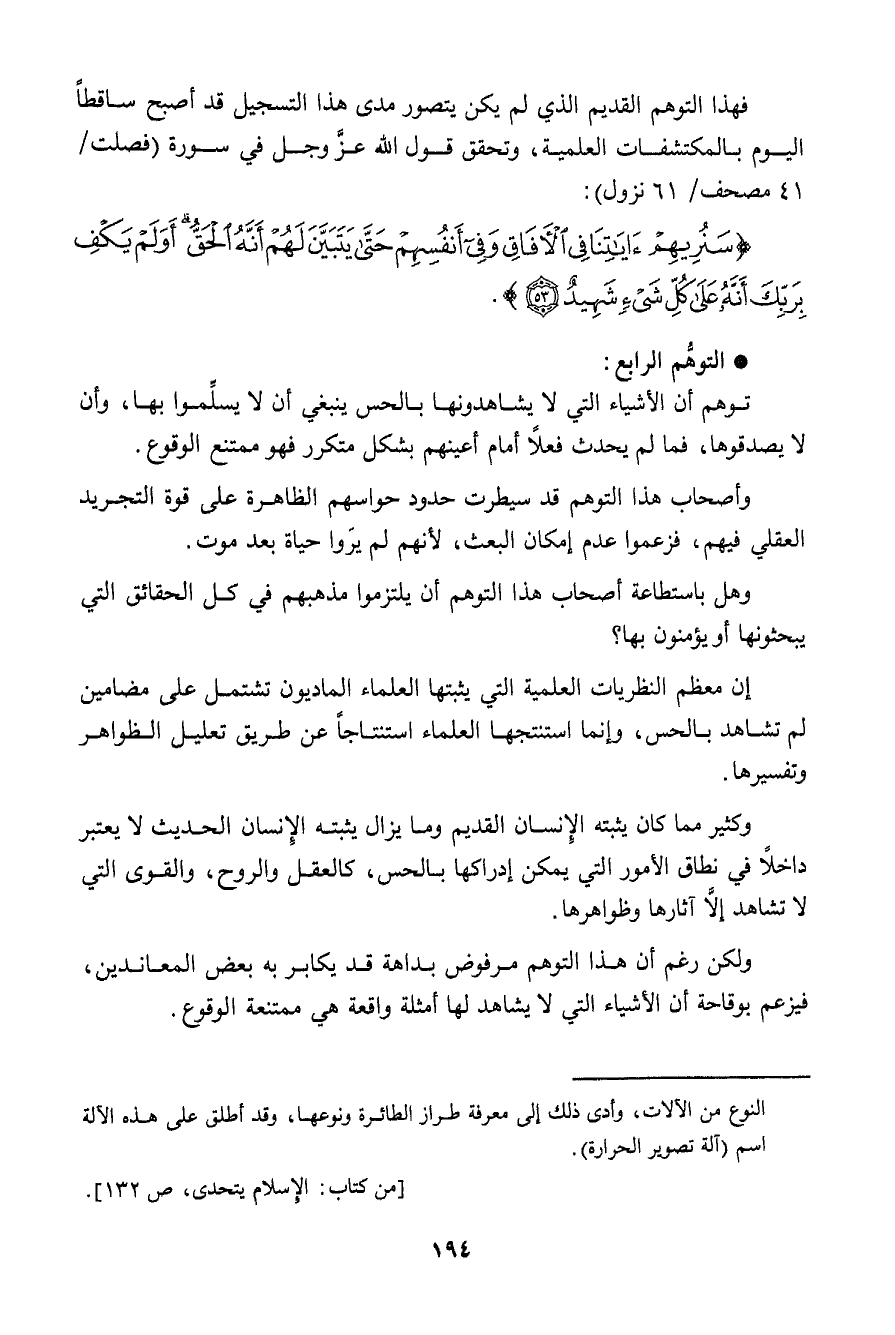 فهذا التوهم القديم الذي لم يكن يتصور مدى هذا التسجيل قد أصبح ساقطاً
اليوم بالمكتشفات العلمية، وتحقق قول الله عزَّ وجل في سورة (فصلت/
٤١ مصحف/ ٦١ نزول):
﴿سَنُرِيهِمْ ءَايَٰتِنَا فِي ٱلْأَفَاقِ وَفِىٓ أَنفُسِهِمْ حَتَّىٰ يَتَبَيَّنَ لَهُمْ أَنَّهُ ٱلْحَقُّ ۗ أَوَلَمْ يَكْفِ
بِرَبِّكَ أَنَّهُۥ عَلَىٰ كُلِّ شَىْءٍ شَهِيدٌ ٥٣﴾.
● التوهُّم الرابع:
توهم أن الأشياء التي لا يشاهدونها بالحس ينبغي أن لا يسلِّموا بها، وأن
لا يصدقوها، فما لم يحدث فعلاً أمام أعينهم بشكل متكرر فهو ممتنع الوقوع.
وأصحاب هذا التوهم قد سيطرت حدود حواسهم الظاهرة على قوة التجريد
العقلي فيهم، فزعموا عدم إمكان البعث، لأنهم لم يرَوا حياة بعد موت.
وهل باستطاعة أصحاب هذا التوهم أن يلتزموا مذهبهم في كل الحقائق التي
يبحثونها أو يؤمنون بها؟
إن معظم النظريات العلمية التي يثبتها العلماء الماديون تشتمل على مضامين
لم تشاهد بالحس، وإنما استنتجها العلماء استنتاجاً عن طريق تعليل الظواهر
وتفسيرها.
وكثير مما كان يثبته الإنسان القديم وما يزال يثبته الإنسان الحديث لا يعتبر
داخلاً في نطاق الأمور التي يمكن إدراكها بالحس، كالعقل والروح، والقوى التي
لا تشاهد إلَّا آثارها وظواهرها.
ولكن رغم أن هذا التوهم مرفوض بداهة قد يكابر به بعض المعاندين،
فيزعم بوقاحة أن الأشياء التي لا يشاهد لها أمثلة واقعة هي ممتنعة الوقوع.
النوع من الآلات، وأدى ذلك إلى معرفة طراز الطائرة ونوعها، وقد أطلق على هذه الآلة
اسم (آلة تصوير الحرارة).
[من كتاب: الإسلام يتحدى، ص ١٣٢].
١٩٤